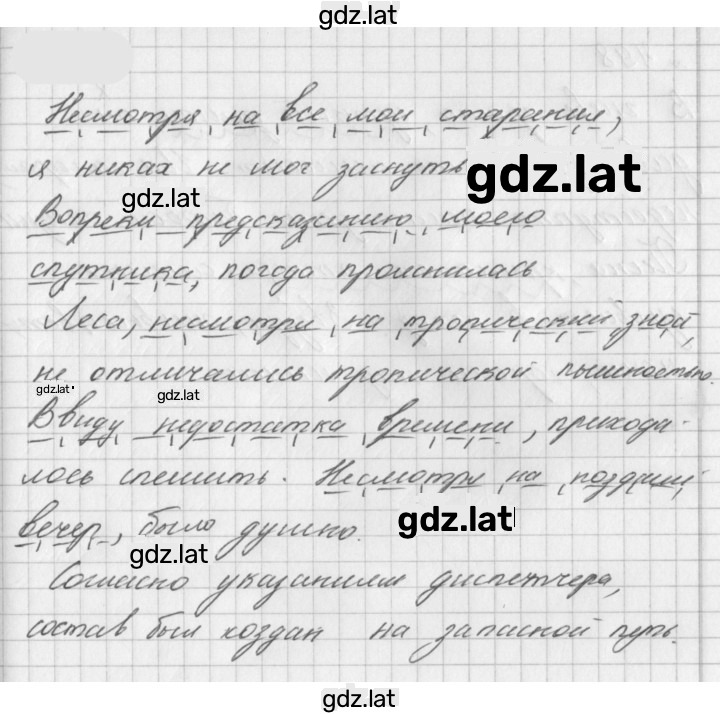 gdz.lat
Несмотря на все мои старания,
я никак не мог заснуть
gdz.lat
gdz.lat
Вопреки предсказанию моего
спутника, погода прояснилась
Леса, несмотря на тропический зной,
не отличались тропической пышностью.
gdz.lat
gdz.lat
Ввиду недостатка времени, приходи-
лось спешить. Несмотря на поздний
вечер, было душно.
gdz.lat
gdz.lat
Согласно указаниям диспетчера,
состав был подан на запасной путь.
gdz.lat